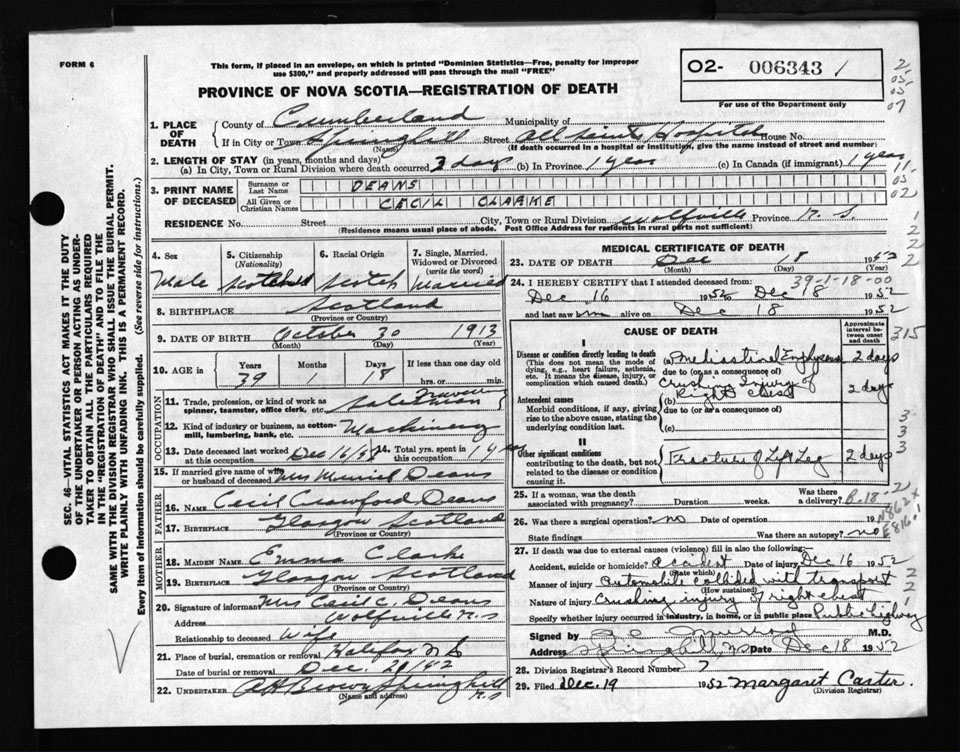 FORM 6
This form, if placed in an envelope, on which is printed "Dominion Statistics—Free, penalty for improper
use $300," and properly addressed will pass through the mail "FREE"
O2- 006343 1
For use of the Department only
PROVINCE OF NOVA SCOTIA—REGISTRATION OF DEATH
2
05
05
07
11
05
02
1
2
2
2
1. PLACE OF DEATH
County of Cumberland Municipality of
If in City or Town Springhill Street All Saints Hospital House No.
(Name) (If death occurred in a hospital or institution, give the name instead of street and number)
2. LENGTH OF STAY (in years, months and days)
(a) In City, Town or Rural Division where death occurred 3 days (b) In Province 1 year (c) In Canada (if immigrant) 1 year
3. PRINT NAME OF DECEASED
Surname or Last Name DEANS
All Given or Christian Names CECIL CLARKE
RESIDENCE No. Street City, Town or Rural Division Wolfville Province N. S.
(Residence means usual place of abode. Post Office Address for residents in rural parts not sufficient)
SEC. 46—VITAL STATISTICS ACT MAKES IT THE DUTY
OF THE UNDERTAKER OR PERSON ACTING AS UNDER-
TAKER TO OBTAIN ALL THE PARTICULARS REQUIRED
IN THE "REGISTRATION OF DEATH" AND TO FILE THE
SAME WITH THE DIVISION REGISTRAR WHO SHALL ISSUE THE BURIAL PERMIT.
WRITE PLAINLY WITH UNFADING INK. THIS IS A PERMANENT RECORD.
Every item of information should be carefully supplied. (See reverse side for instructions.)
4. Sex
Male
5. Citizenship
(Nationality)
6. Racial Origin
Scotch
7. Single, Married,
Widowed or Divorced
(write the word)
Married
8. BIRTHPLACE Scotland
(Province or Country)
9. DATE OF BIRTH October 30 1913
(Month) (Day) (Year)
10. AGE in Years Months Days If less than one day
39 18 hrs. or min.
OCCUPATION
11. Trade, profession, or kind of work as
spinner, teamster, office clerk, etc. Travelling Salesman
12. Kind of industry or business, as cotton-
mill, lumbering, bank, etc. Machinery
13. Date deceased last worked
at this occupation Dec 16/52
14. Total yrs. spent in
this occupation 1 year
15. If married give name of wife
or husband of deceased Mrs Muriel Deans
FATHER
16. NAME Cecil Crawford Deans
17. BIRTHPLACE Glasgow Scotland
(Province or Country)
MOTHER
18. MAIDEN NAME Emma Clarke
19. BIRTHPLACE Glasgow Scotland
(Province or Country)
20. Signature of informant Mrs Cecil C. Deans
Address Wolfville N.S
Relationship to deceased Wife
21. Place of burial, cremation or removal Halifax N S
Date of burial or removal Dec. 20/52
22. UNDERTAKER A H Brown Springhill N.S
(Name and address)
MEDICAL CERTIFICATE OF DEATH
23. DATE OF DEATH Dec 18 1952
(Month) (Day) (Year)
39-1-18-00
24. I HEREBY CERTIFY that I attended deceased from:
Dec 16 1952 to Dec 18 1952
and last saw him alive on Dec 18 1952
CAUSE OF DEATH
Approximate
interval between
onset and
death
315
I
Disease or condition directly leading to death
(This does not mean the mode of
dying, e.g., heart failure, asthenia,
etc. It means the disease, injury, or
complication which caused death.)
(a) Mediastinal Emphysema 2 days
due to (or as a consequence of)
Antecedent causes
Morbid conditions, if any, giving
rise to the above cause, stating the
underlying condition last.
(b) Crushing Injury of Right chest 2 days
due to (or as a consequence of)
(c)
3
3
3
3
II
Other significant conditions
contributing to the death, but not
related to the disease or condition
causing it.
Fracture of Left Leg 2 days
25. If a woman, was the death
associated with pregnancy? Duration weeks. Was there
a delivery?
26. Was there a surgical operation? no Date of operation 19
State findings Was there an autopsy? no
N862
E816
27. If death was due to external causes (violence) fill in also the following:—
Accident, suicide or homicide? accident Date of injury Dec 16 1952
(State which)
Manner of injury Automobile collided with transport
(How sustained)
Nature of injury Crushing injury of right chest
Specify whether injury occurred in industry, in home, or in public place Public highway
Signed by M.D.
Address Springhill, NS Date Dec 18 1952
28. Division Registrar's Record Number 7
29. Filed Dec. 19 1952 Margaret Carter.
(Division Registrar)